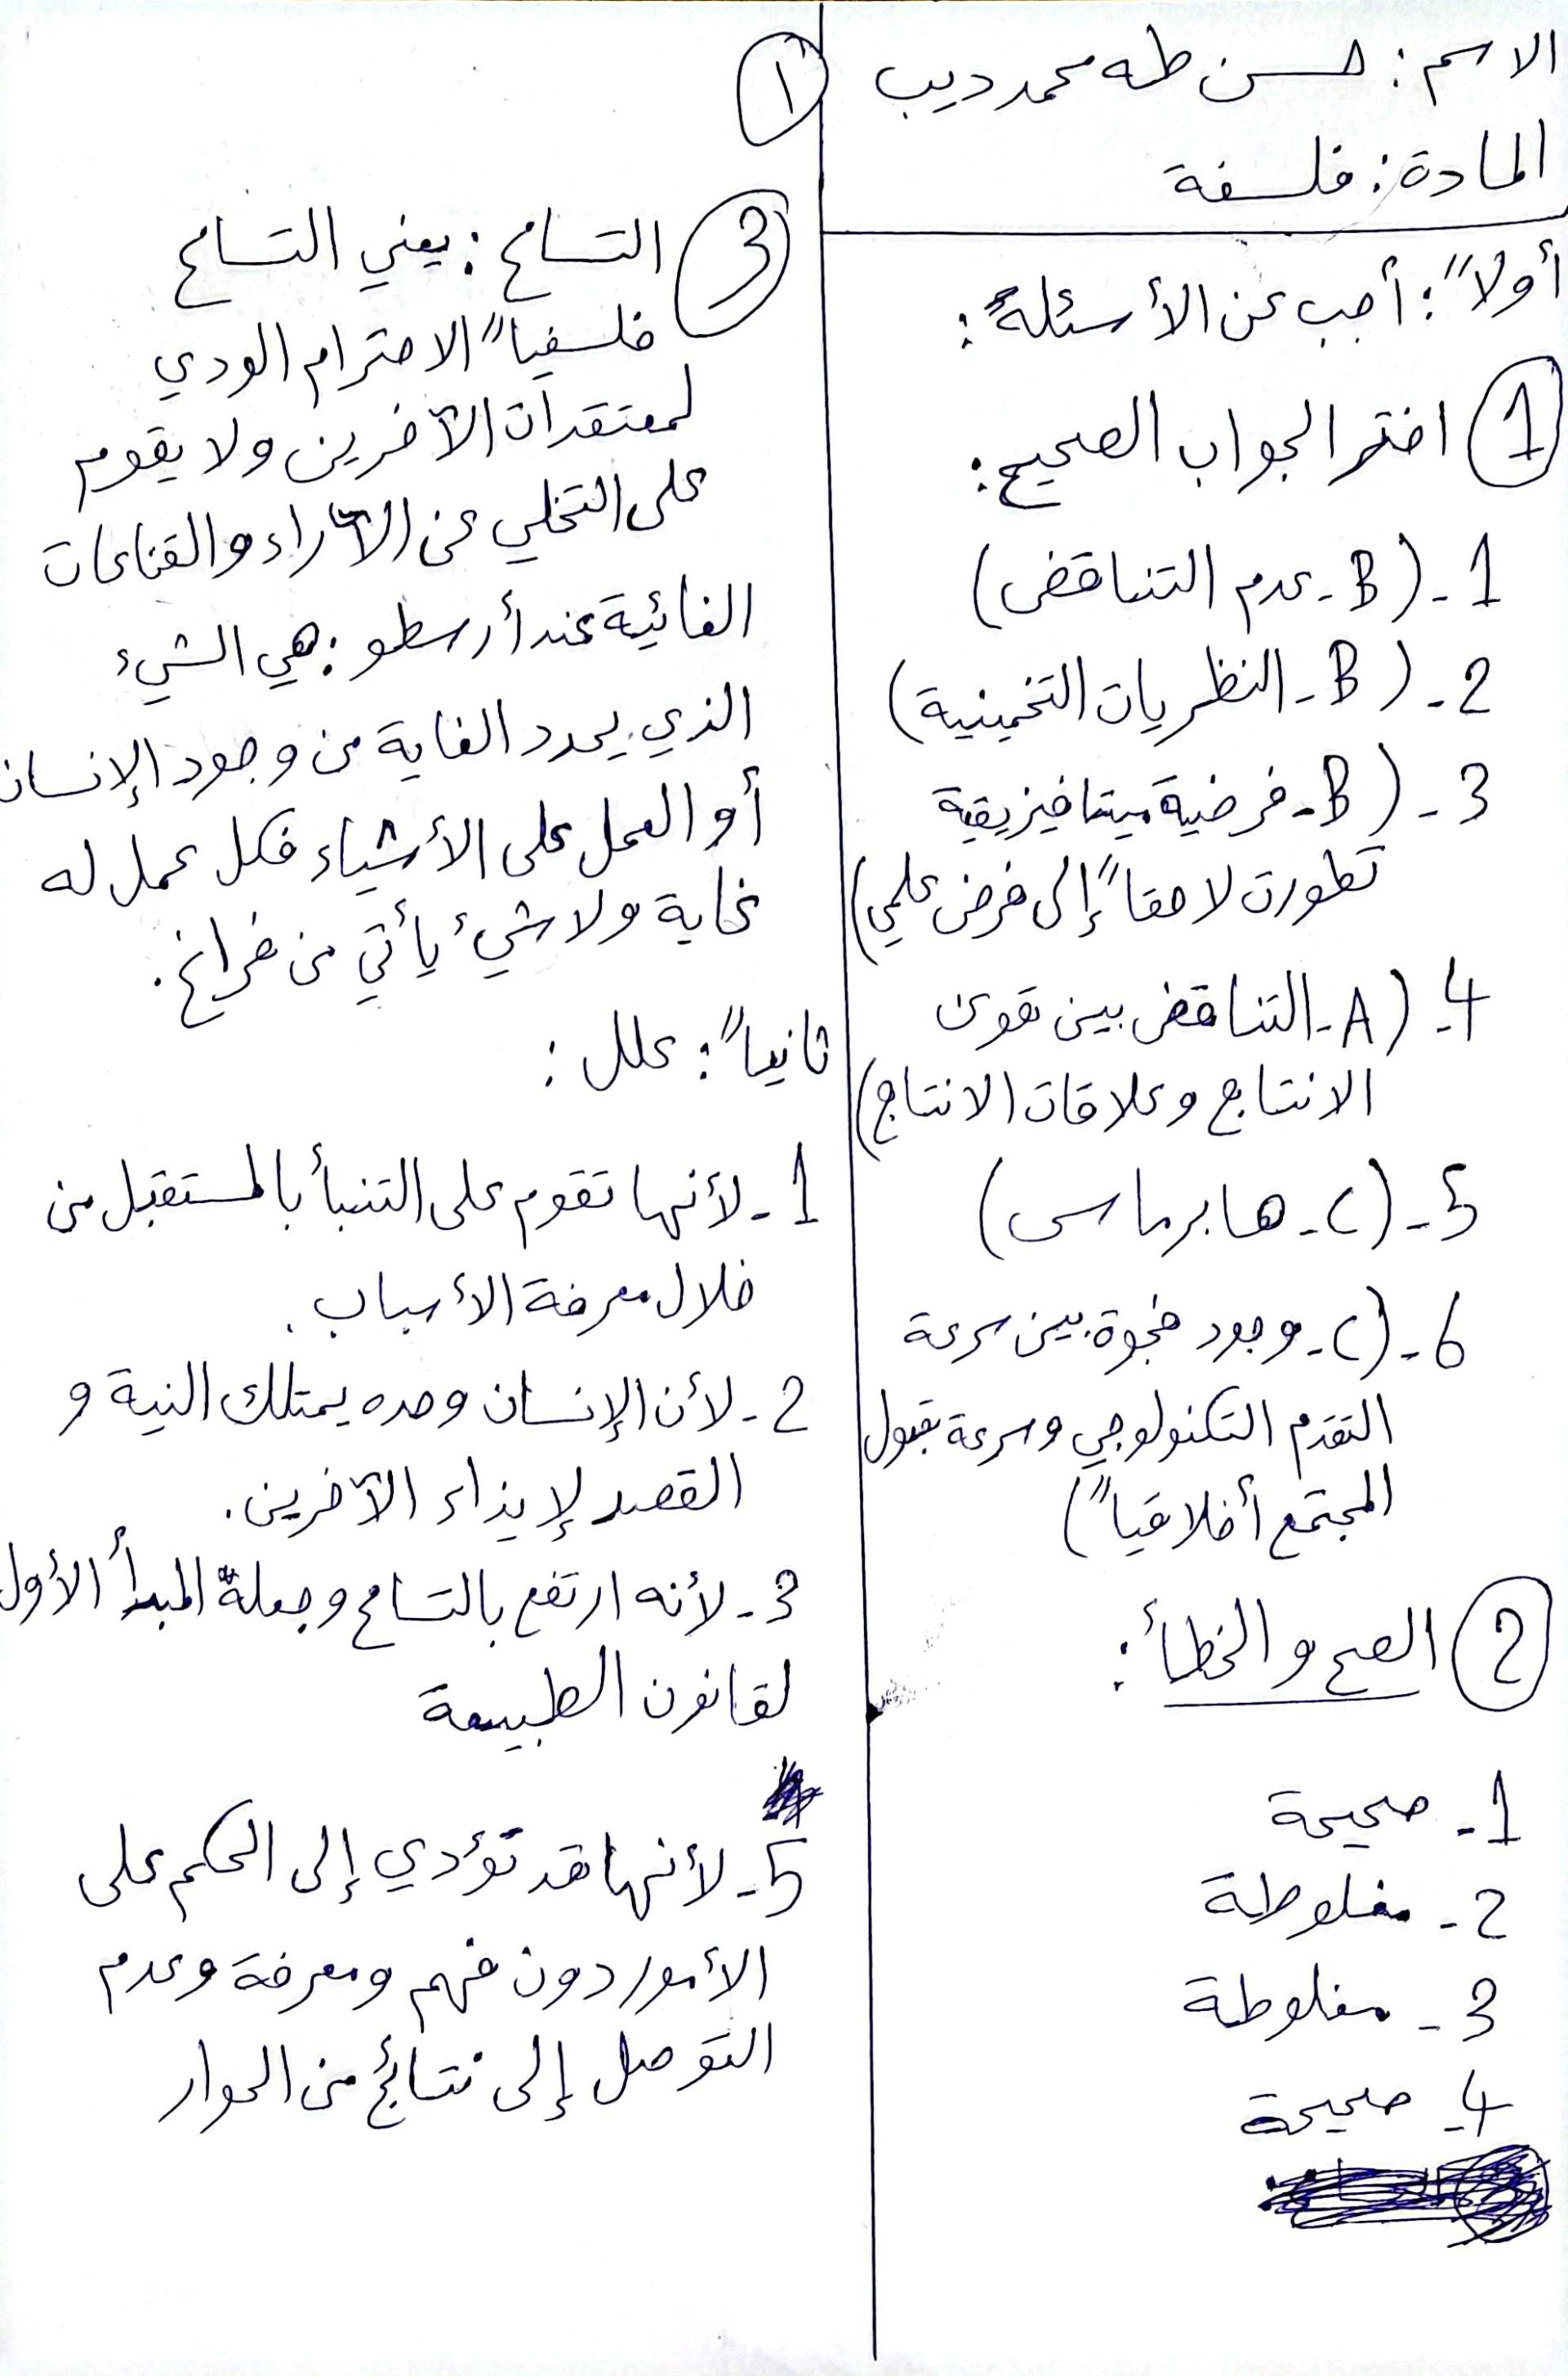 الاسم: حسن طه محمد ديب
المادة: فلسفة
أولاً: أجب عن الأسئلة:
1 اختر الجواب الصحيح:
1- (B- عدم التناقض)
2- (B- النظريات التخمينية)
3- (B- فرضية ميتافيزيقية
تطورت لاحقاً إلى فرض علمي)
4- (A- التناقض بين قوى
الانتاج وعلاقات الانتاج)
5- (C- هابرماس)
6- (C- وجود فجوة بين سرعة
التقدم التكنولوجي وسرعة قبول
المجتمع أخلاقياً)
2 الصح والخطأ:
1- صحيحة
2- مغلوطة
3- مغلوطة
4- صحيحة
١
3 التسامح: يعني التسامح
فلسفياً الاحترام الودي
لمعتقدات الآخرين ولا يقوم
على التخلي عن الآراء والقناعات
الغائية عند أرسطو: هي الشيء
الذي يحدد الغاية من وجود الإنسان
أو العمل على الأشياء فكل عمل له
غاية ولا شيء يأتي من فراغ.
ثانياً: علل:
1- لأنها تقوم على التنبأ بالمستقبل من
خلال معرفة الأسباب.
2- لأن الإنسان وحده يمتلك النية و
القصد لإيذاء الآخرين.
3- لأنه ارتفع بالتسامح وجعلة المبدأ الأول
لقانون الطبيعة
5- لأنها قد تؤدي إلى الحكم على
الأمور دون فهم ومعرفة وعدم
التوصل إلى نتائج من الحوار